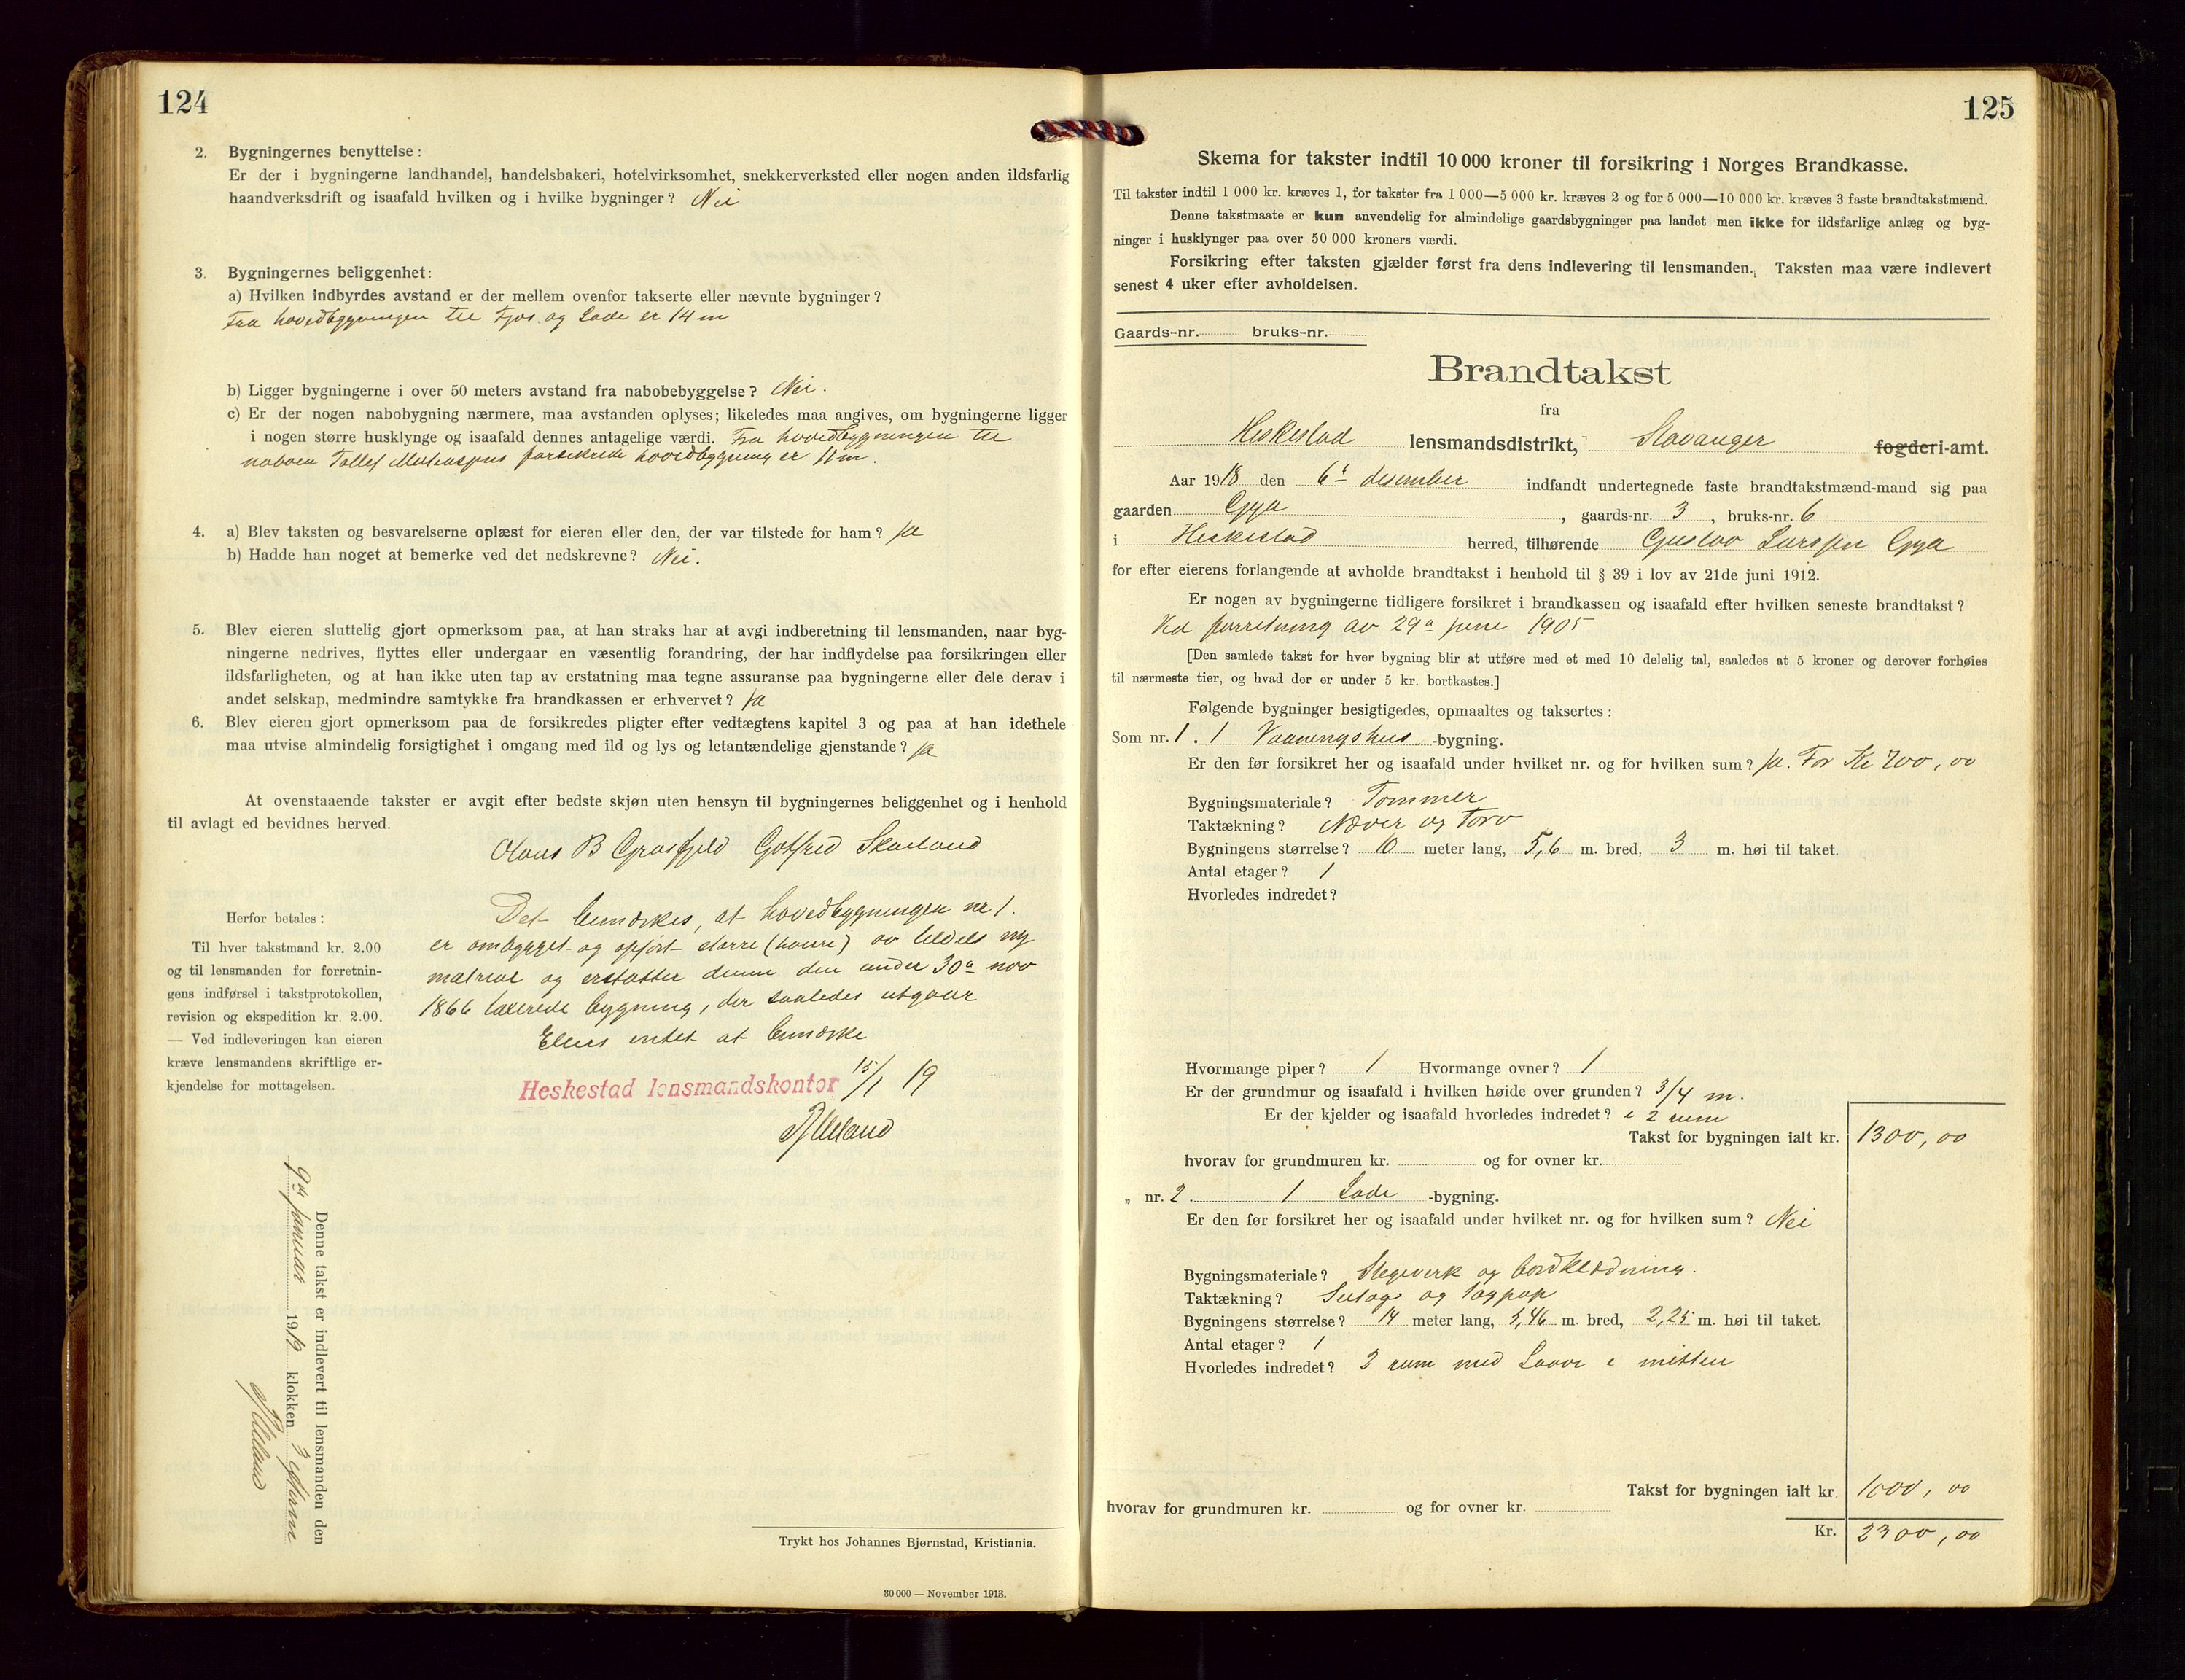 124
2. Bygningernes benyttelse:
Er der i bygningerne landhandel, handelsbakeri, hotelvirksomhet, snekkerverksted eller nogen anden ildsfarlig
haandverksdrift og isaafald hvilken og i hvilke bygninger? Nei
3. Bygningernes beliggenhet:
a) Hvilken indbyrdes avstand er der mellem ovenfor takserte eller nævnte bygninger?
Fra hovedbygningen til Fjøs og Lade er 14 m
b) Ligger bygningerne i over 50 meters avstand fra nabobebyggelse? Nei.
c) Er der nogen nabobygning nærmere, maa avstanden oplyses; likeledes maa angives, om bygningerne ligger
i nogen større husklynge og isaafald dennes antagelige værdi. Fra hovedbygningen til
naboen Tollef forsikrede hovedbygning er 11 m.
4. a) Blev taksten og besvarelserne oplæst for eieren eller den, der var tilstede for ham? ja
b) Hadde han noget at bemerke ved det nedskrevne? Nei.
5. Blev eieren sluttelig gjort opmerksom paa, at han straks har at avgi indberetning til lensmanden, naar byg-
ningerne nedrives, flyttes eller undergaar en væsentlig forandring, der har indflydelse paa forsikringen eller
ildsfarligheten, og at han ikke uten tap av erstatning maa tegne assuranse paa bygningerne eller dele derav i
andet selskap, medmindre samtykke fra brandkassen er erhvervet? ja
6. Blev eieren gjort opmerksom paa de forsikredes pligter efter vedtægtens kapitel 3 og paa at han idethele
maa utvise almindelig forsigtighet i omgang med ild og lys og letantændelige gjenstande? ja
At ovenstaaende takster er avgit efter bedste skjøn uten hensyn til bygningernes beliggenhet og i henhold
til avlagt ed bevidnes herved.
Olaus B Grosfjeld Gotfred Skaeland
Det bemerkes, at hovedbygningen nr 1.
er ombygget og opført større av tildels ny
matrial og erstatter denne den under 30a nov
1866 taxerede bygning, der saaledes utgaar
Ellers intet at bemærke
Heskestad lensmandskontor 15/1 19
Herfor betales:
Til hver takstmand kr. 2.00
og til lensmanden for forretnin-
gens indførsel i takstprotokollen,
revision og ekspedition kr. 2.00.
— Ved indleveringen kan eieren
kræve lensmandens skriftlige er-
kjendelse for mottagelsen.
Denne takst er indlevert til lensmanden den
9de januar 1919 klokken 3 efterm
Trykt hos Johannes Bjørnstad, Kristiania.
30 000 — November 1913.
125
Skema for takster indtil 10 000 kroner til forsikring i Norges Brandkasse.
Til takster indtil 1 000 kr. kræves 1, for takster fra 1 000—5 000 kr. kræves 2 og for 5 000—10 000 kr. kræves 3 faste brandtakstmænd.
Denne takstmaate er kun anvendelig for almindelige gaardsbygninger paa landet men ikke for ildsfarlige anlæg og byg-
ninger i husklynger paa over 50 000 kroners værdi.
Forsikring efter taksten gjælder først fra dens indlevering til lensmanden. Taksten maa være indlevert
senest 4 uker efter avholdelsen.
Gaards-nr. bruks-nr.
Brandtakst
fra
Heskestad lensmandsdistrikt, Stavanger fogderi-amt.
Aar 1918 den 6te desember indfandt undertegnede faste brandtakstmænd-mand sig paa
gaarden Gya, gaards-nr. 3, bruks-nr. 6
i Heskestad herred, tilhørende Gustav Larssen Gya
for efter eierens forlangende at avholde brandtakst i henhold til § 39 i lov av 21de juni 1912.
Er nogen av bygningerne tidligere forsikret i brandkassen og isaafald efter hvilken seneste brandtakst?
Ved forretning av 29a juni 1905
[Den samlede takst for hver bygning blir at utføre med et med 10 delelig tal, saaledes at 5 kroner og derover forhøies
til nærmeste tier, og hvad der er under 5 kr. bortkastes.]
Følgende bygninger besigtigedes, opmaaltes og taksertes:
Som nr. 1. 1 Vaaningshus -bygning.
Er den før forsikret her og isaafald under hvilket nr. og for hvilken sum? ja. For Kr 700,00
Bygningsmateriale? Tømmer
Taktækning? Næver og Torv
Bygningens størrelse? 10 meter lang, 5,6 m. bred, 3 m. høi til taket.
Antal etager? 1
Hvorledes indredet?
Hvormange piper? 1 Hvormange ovner? 1
Er der grundmur og isaafald i hvilken høide over grunden? 3/4 m.
Er der kjelder og isaafald hvorledes indredet? i 2 rum
Takst for bygningen ialt kr. 1300,00
hvorav for grundmuren kr. og for ovner kr.
„ nr. 2. 1 Lade -bygning.
Er den før forsikret her og isaafald under hvilket nr. og for hvilken sum? Nei
Bygningsmateriale? Stegverk og bordklædning.
Taktækning? Sutag og tagpap
Bygningens størrelse? 14 meter lang, 5,46 m. bred, 2,25 m. høi til taket.
Antal etager? 1
Hvorledes indredet? 3 rum med Laave i mitten
Takst for bygningen ialt kr. 1000,00
hvorav for grundmuren kr. og for ovner kr.
Kr. 2300,00